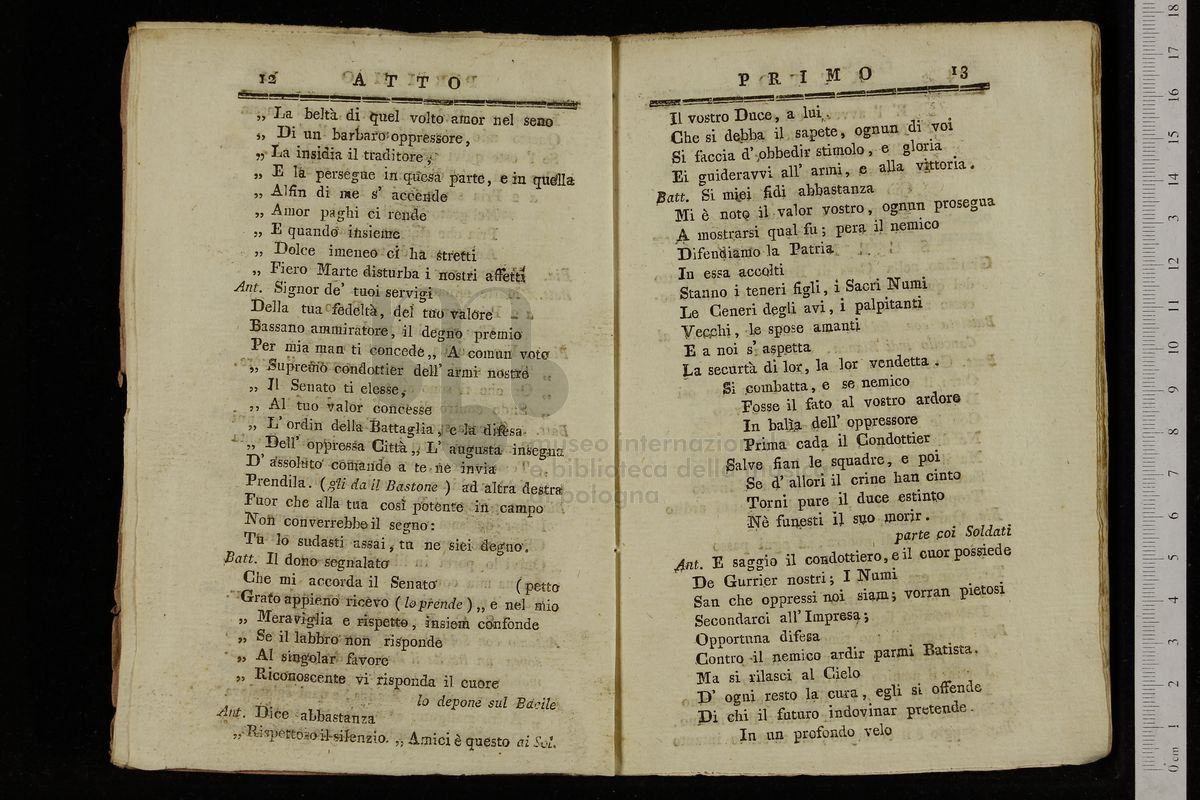 12 ATTO
„ La beltà di quel volto amor nel seno
„ Di un barbaro oppressore,
„ La insidia il traditore,
„ E la persegue in quesa parte, e in quella
„ Alfin di me s' accende
„ Amor paghi ci rende
„ E quando insieme
„ Dolce imeneo ci ha stretti
„ Fiero Marte disturba i nostri affetti
Ant. Signor de' tuoi servigi
Della tua fedeltà, del tuo valore
Bassano ammiratore, il degno premio
Per mia man ti concede „ A comun voto
„ Supremo condottier dell' armi nostre
„ Il Senato ti elesse,
„ Al tuo valor concesse
„ L' ordin della Battaglia, e la difesa
„ Dell' oppressa Città „ L' augusta insegna
D' assoluto comando a te ne invia
Prendila. (gli da il Bastone) ad altra destra
Fuor che alla tua così potente in campo
Non converrebbe il segno:
Tu lo sudasti assai, tu ne siei degno.
Batt. Il dono segnalato
Che mi accorda il Senato (petto
Grato appieno ricevo (lo prende) „ e nel mio
„ Meraviglia e rispetto, insiem confonde
„ Se il labbro non risponde
„ Al singolar favore
„ Riconoscente vi risponda il cuore
lo depone sul Bacile
Ant. Dice abbastanza
„ Rispettoso il silenzio. „ Amici è questo ai Sol.
PRIMO 13
Il vostro Duce, a lui
Che si debba il sapete, ognun di voi
Si faccia d' obbedir stimolo, e gloria
Ei guideravvi all' armi, e alla vittoria.
Batt. Si miei fidi abbastanza
Mi è noto il valor vostro, ognun prosegua
A mostrarsi qual fu; pera il nemico
Difendiamo la Patria
In essa accolti
Stanno i teneri figli, i Sacri Numi
Le Ceneri degli avi, i palpitanti
Vecchi, le spose amanti
E a noi s' aspetta
La securtà di lor, la lor vendetta.
Si combatta, e se nemico
Fosse il fato al vostro ardore
In balìa dell' oppressore
Prima cada il Condottier
Salve fian le squadre, e poi
Se d' allori il crine han cinto
Torni pure il duce estinto
Nè funesti il suo morir.
parte coi Soldati
Ant. E saggio il condottiero, e il cuor possiede
De Gurrier nostri; I Numi
San che oppressi noi siam; vorran pietosi
Secondarci all' Impresa;
Opportuna difesa
Contro il nemico ardir parmi Batista.
Ma si rilasci al Cielo
D' ogni resto la cura, egli si offende
Di chi il futuro indovinar pretende.
In un profondo velo
museo internazionale
e biblioteca della musica
di bologna
0 cm 1 2 3 4 5 6 7 8 9 10 11 12 13 14 15 16 17 18